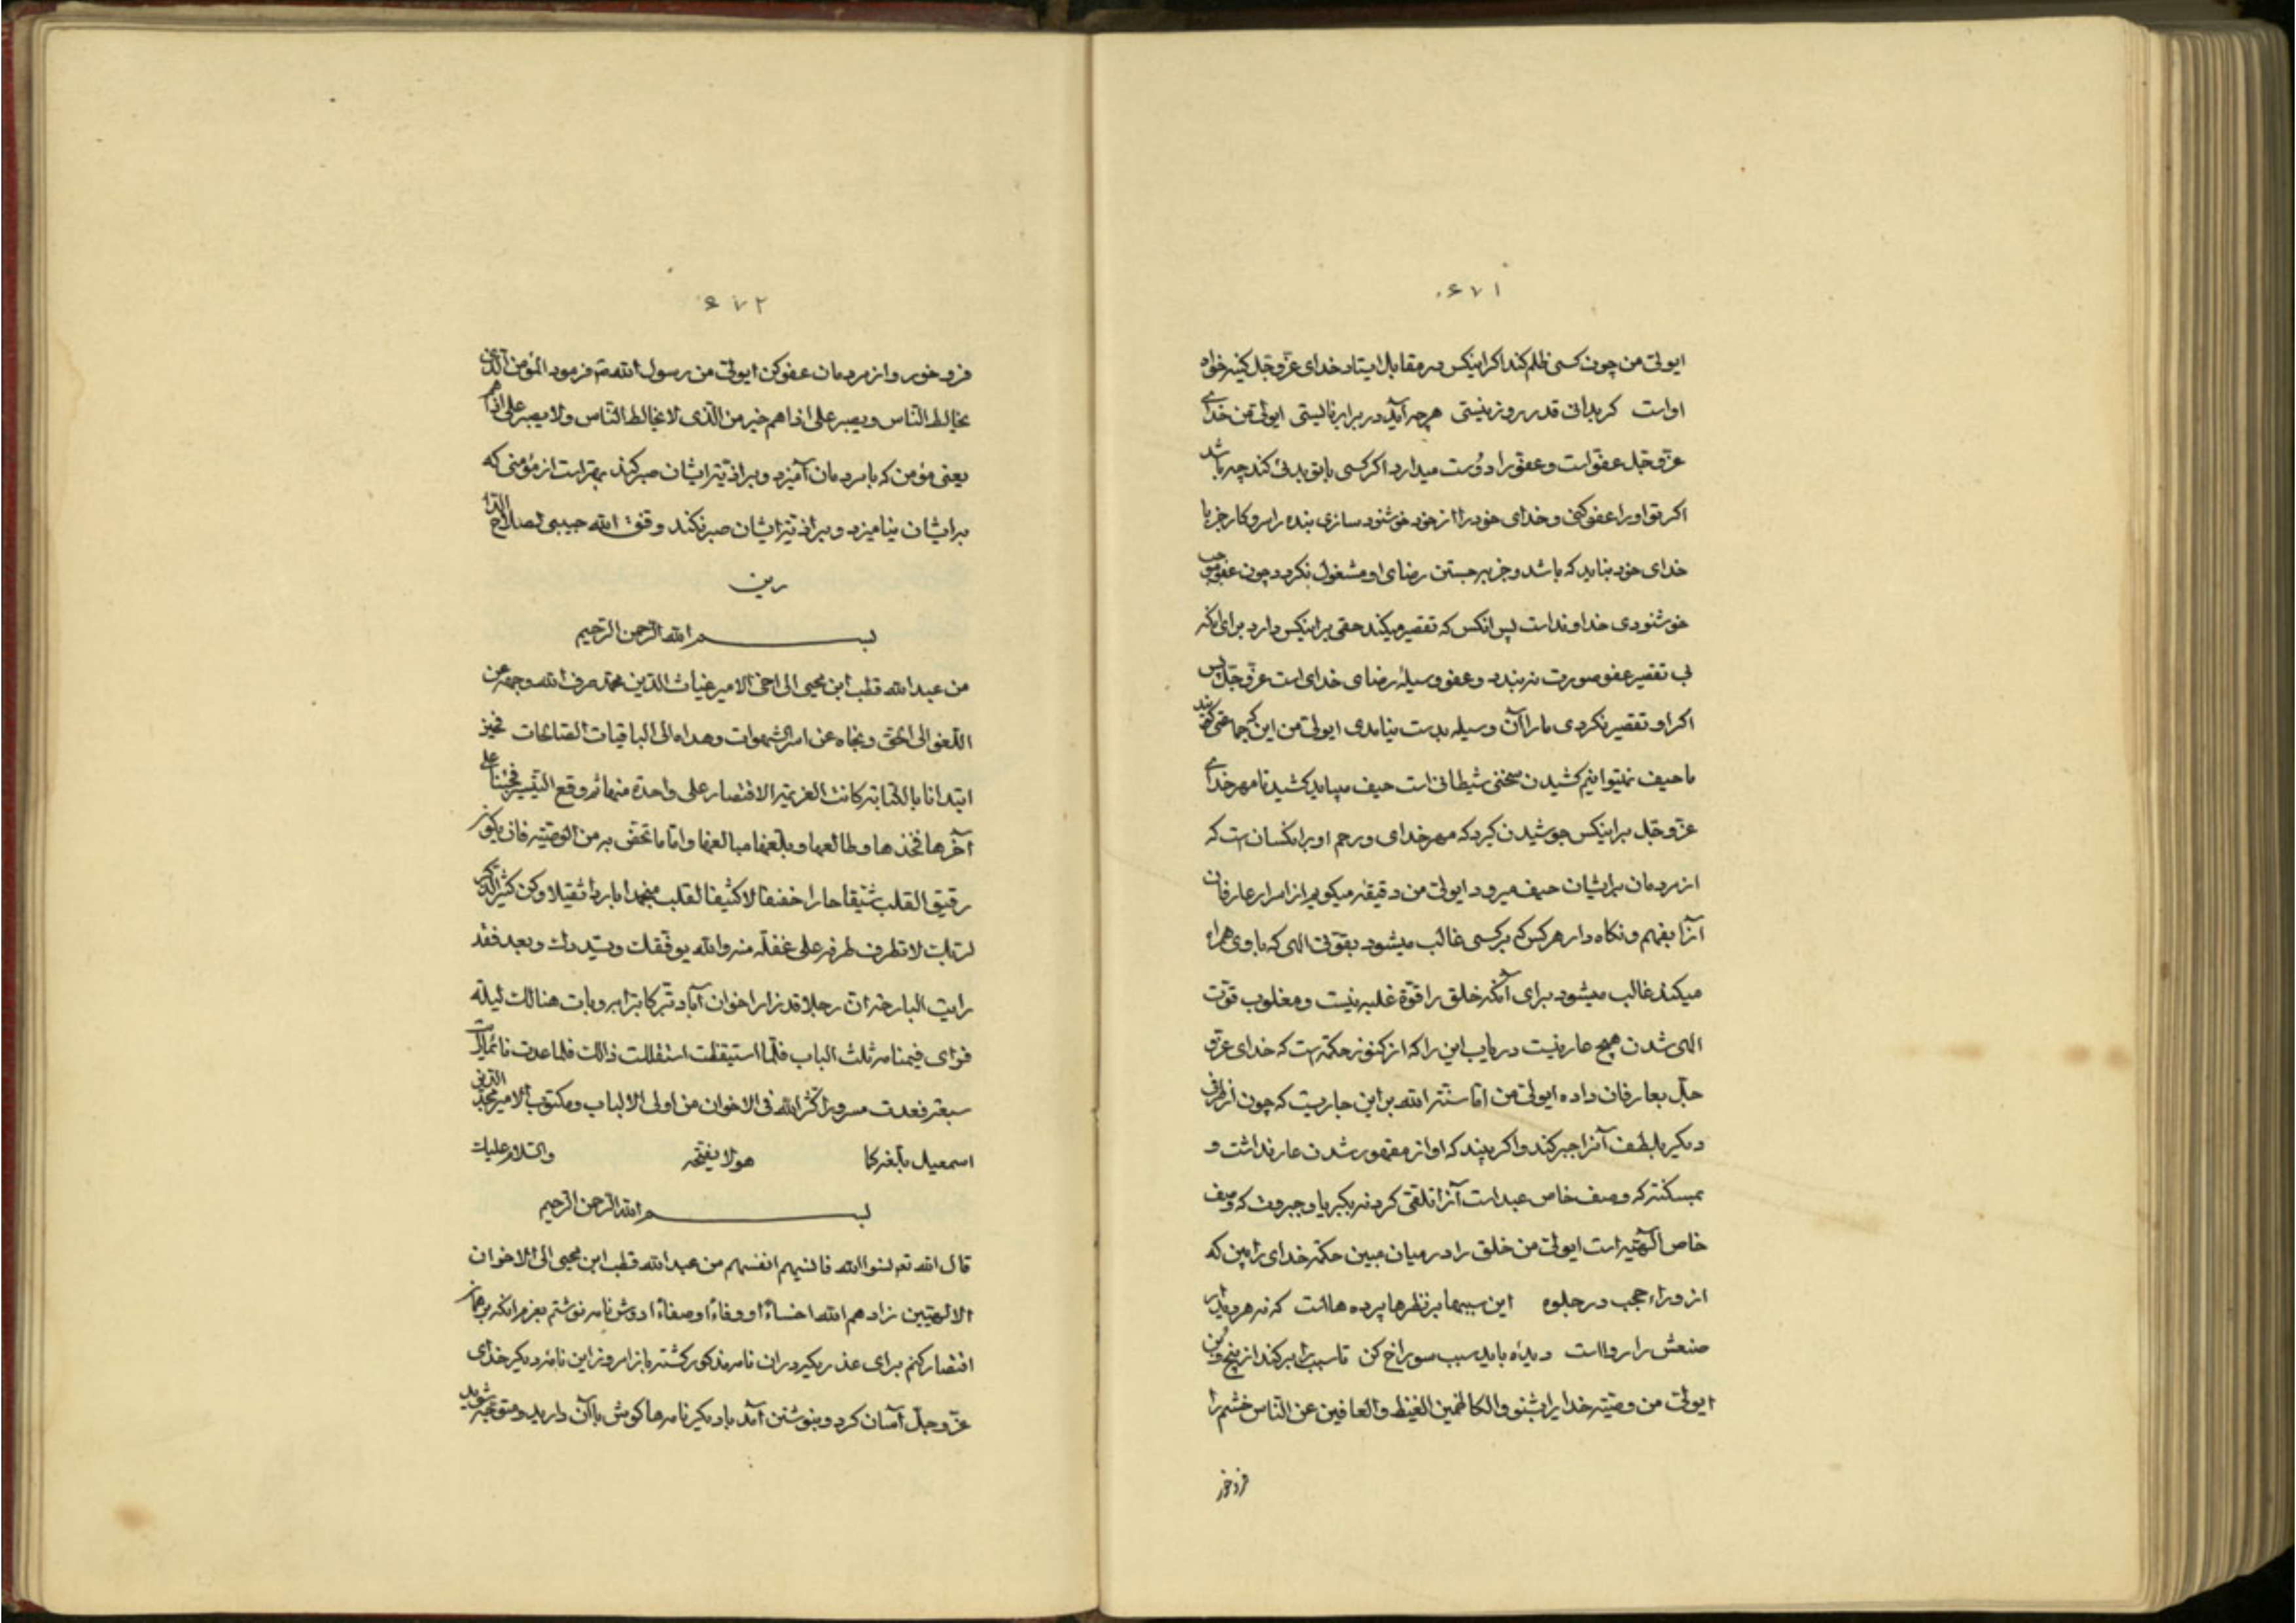 ۶۷۱
ایولی من چون کسی ظلم کند اکر اینکس در مقابل ایستاد خدای عزّ و جلّ کینه خواه
اوست کر بدانی قدر روز نیستی هرچه آید در برابر نایستی ایولی من خدای
عزّ و جلّ عفوّ است و عفو را دوست میدارد اکر کسی با تو بدی کند چه باشد
اکر تو او را عفو کنی و خدای خود را از خود خوشنود سازی بنده را سر و کار جز با
خدای خود نباید که باشد و جز بجستن رضای او مشغول نکردد چون عفو موجب
خوشنودی خداوند است پس انکس که تقصیر میکند حقی بر اینکس دارد برای انکه
بی تقصیر عفو صورت نه بندد و عفو وسیلهٔ رضای خدای است عزّ و جلّ پس
اکر او تقصیر نکردی ما را آن وسیله بدست نیامدی ایولی من این که جماعتی کفتند
ما حیف نمیتوانیم کشیدن سخنی شیطانی است حیف میباید کشید تا مهر خدای
عزّ و جلّ بر اینکس جوشیدن کیرد که مهر خدای و رحم او بر انکسان است که
از مردمان بر ایشان حیف میرود ایولی من دقیقه میکویم از اسرار عارفان
آنرا بفهم و نکاه دار هر کس که بر کسی غالب میشود بقوّتی الهی که با وی همراه
میکند غالب میشود برای آنکه خلق را قوّة غلبه نیست و مغلوب قوّت
الهی شدن هیچ عار نیست دریاب این را که از کنوز حکمة است که خدای عزّ و
جلّ بعارفان داده ایولی من امّا سنّة الله بر این جاریست که چون از طرفی
دیکر بلطف آنرا جبر کند و اکر بیند که او از مقهور شدن عار نداشت و
بمسکنت که وصف خاص عبد است آنرا تلقی کرد نه بکبریا و جبروت که وصف
خاص الهیّه است ایولی من خلق را در میان مبین حکمة خدای را ببین که
از وراء حجب در جلوه این سببها بر نظرها پرده هاست که نه هر دیدار
صنعش را رواست دیدهٔ باید سبب سوراخ کن تا سبب را بر کند از بیخ و بن
ایولی من وصیّت خدایرا بشنو و الکاظمین الغیظ و العافین عن الناس خشم را
فرو خور
۶۷۲
فرو خور و از مردمان عفو کن ایولی من رسول الله ص فرمود المؤمن الذی
یخالط الناس و یصبر علی اذاهم خیر من الذی لا یخالط الناس و لا یصبر علی اذاهم
یعنی مؤمن که با مردمان آمیزد و بر اذیّت ایشان صبر کند بهتر است از مؤمنی که
بر ایشان نیامیزد و بر اذیّت ایشان صبر نکند وفّق الله حبیبی لصلاح الدا
رین
بسم الله الرحمن الرحیم
من عبد الله قطب ابن محیی الی اخی الامیر غیاث الدین محمد صرف الله وجهه عن
اللغو الی الحق و نجاه عن اسر الشهوات و هداه الی الباقیات الصالحات
ابتدانا بالکتابة کانت العزیمة الاقتصار علی واحدة منها ثم وقع التیسیر فجئنا علی
آخرها فخذها و طالعها و بلّغها مبالغها و امّا ما تختص به من الوصیّة فان تکون
رقیق القلب شیّقا حارا خفیفا لا کثیف القلب منجمدا باردا ثقیلا و کن کثیر الذکر
لربک لا تطرف طرفة علی غفلة منه و الله یوفقک و یسدّدک و بعد فقد
رایت البارحة ان رجلا قد زار اخوان آباد تبرکا بترابه و بات هنالک لیلة
فرای فیمنامه ثلث الباب فلما استیقظت استقللت ذلک فلما عدت نائما
سبعة فعدت مسرورا کثر الله فی الاخوان من اولی الالباب و مکتوب الامیر مجد الدین
اسمعیل بلّغه کما هو لا یفتحه و السلام علیک
بسم الله الرحمن الرحیم
قال الله تعه نسوا الله فانسیهم انفسهم من عبد الله قطب ابن محیی الی الاخوان
الالهیّین زادهم الله اخساءً و وفاءً و صفاءً دوش نامه نوشتم بعزم انکه بر همان
اقتصار کنم برای عذریکه در ان نامه مذکور کشته باز امروز این نامهٔ دیکر خدای
عزّ و جلّ آسان کرد و بنوشتن آمد با دیکر نامه ها کوش با آن دارید و متوجّه شوید